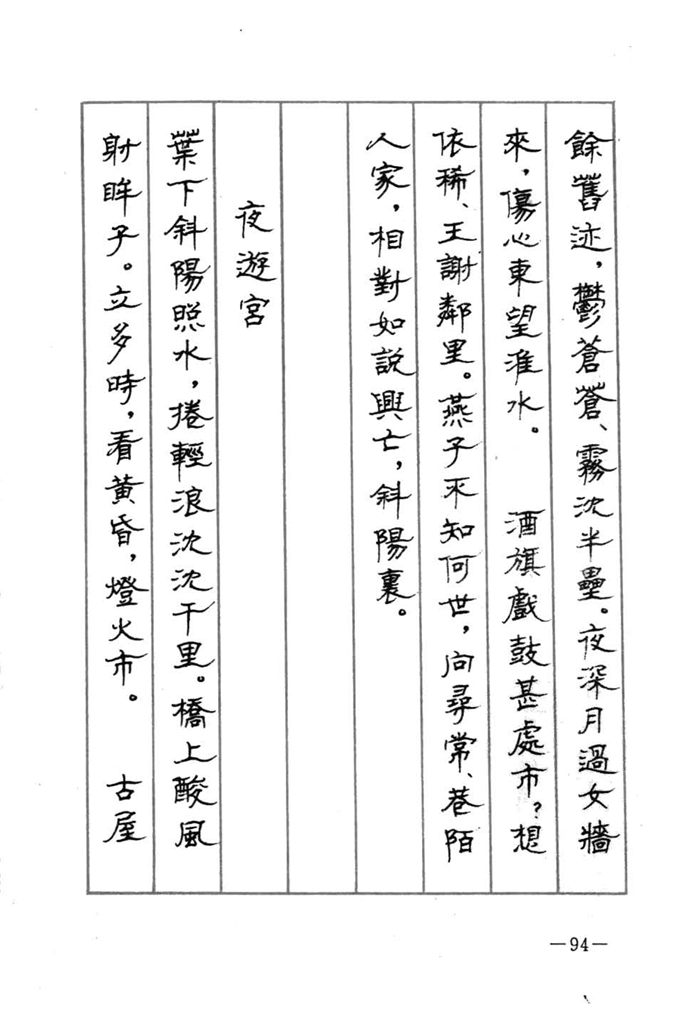 餘舊迹，鬱蒼蒼、霧沈半壘。夜深月過女牆
來，傷心東望淮水。　酒旗戲鼓甚處市？想
依稀、王謝鄰里。燕子不知何世，向尋常、巷陌
人家，相對如說興亡，斜陽裏。
夜遊宮
葉下斜陽照水，捲輕浪沈沈千里。橋上酸風
射眸子。立多時，看黃昏，燈火市。　古屋
—94—